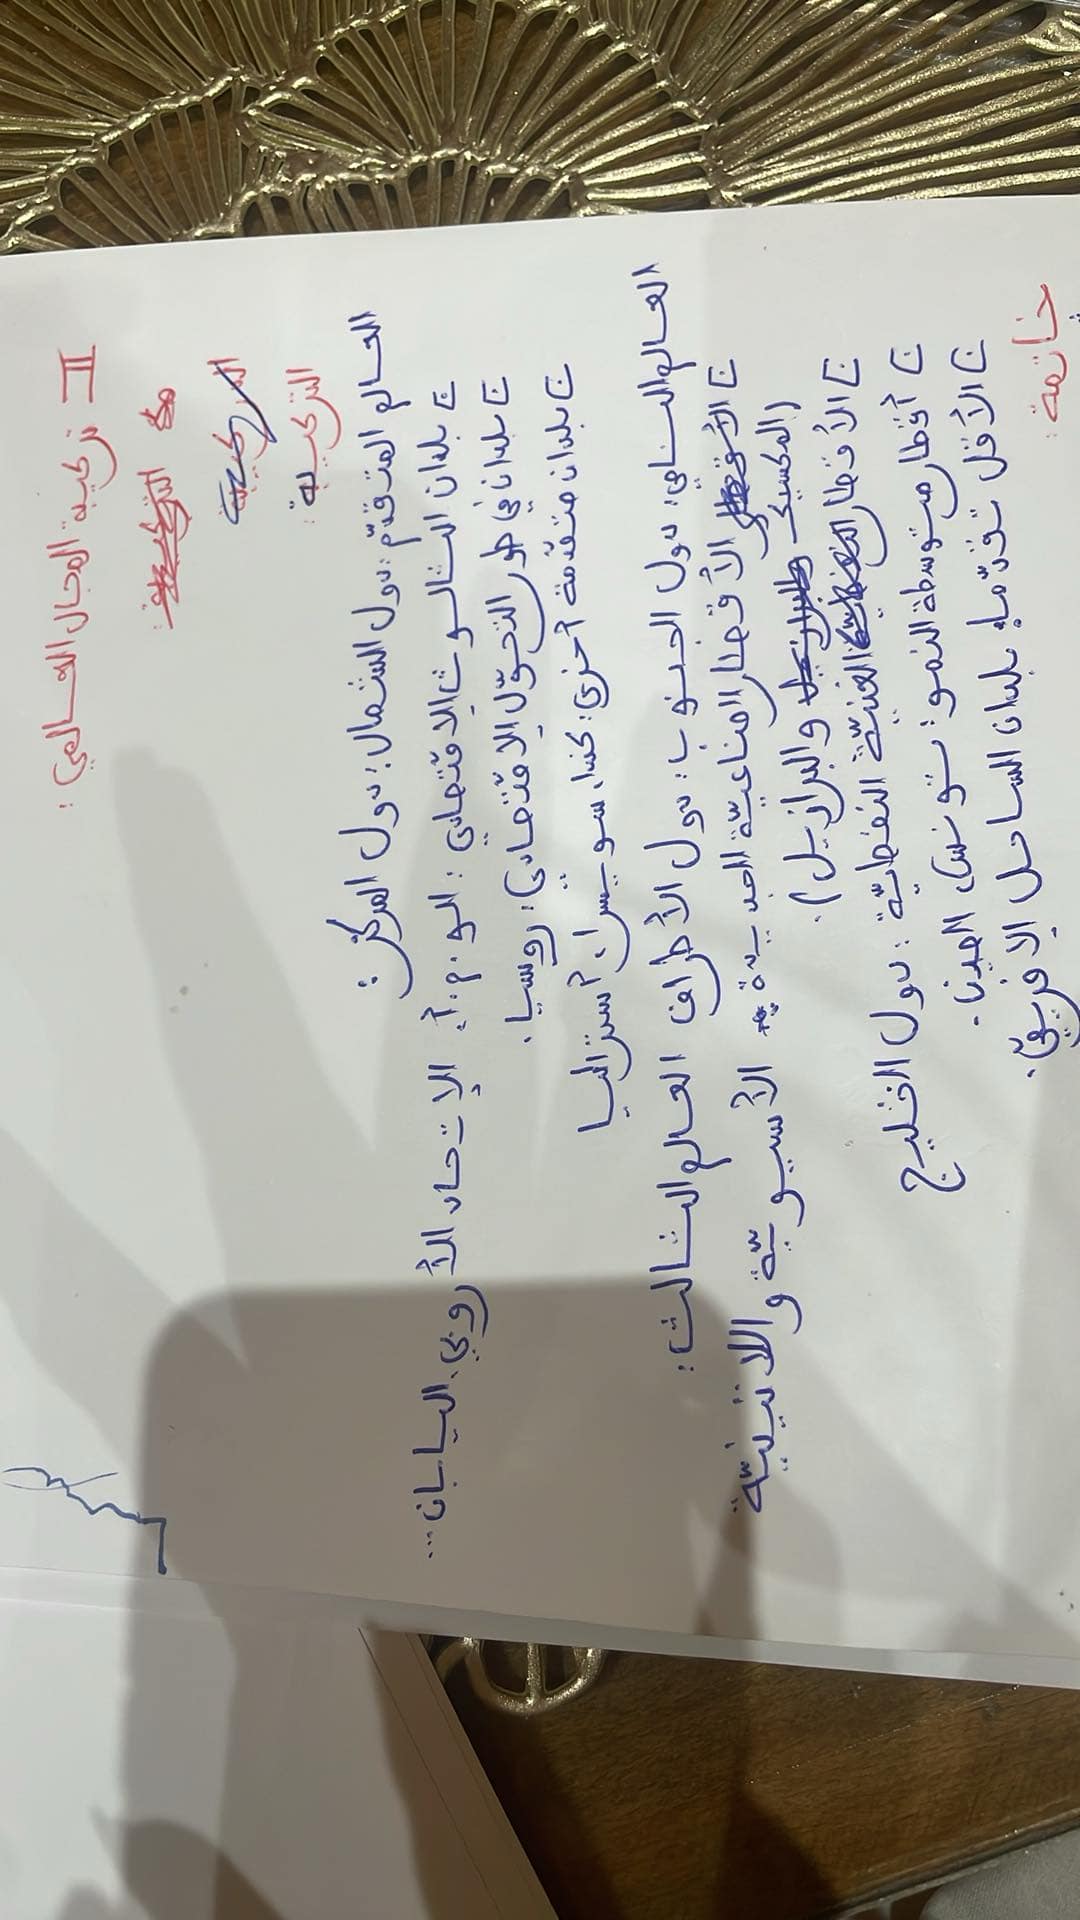 II تركيبة المجال العالمي :
التركيبة
التركيبة :
العالم المتقدّم : دول الشمال : دول المركز :
بلدان الثالوث الإقتصادي : الو.م.أ. الإتحاد الأروبي. اليابان ...
بلدان في طور التحوّل الإقتصادي : روسيا .
بلدان متقدّمة أخرى : كندا، سويسرا، أستراليا
العالم النامي : دول الجنوب : دول الأطراف العالم الثالث :
الأقطار الصناعيّة الجديدة الأسيويّة واللاتينيّة
(المكسيك والبرازيل) .
الأقطار الغنيّة النفطيّة : دول الخليج
أقطار متوسطة النمو : تونس، الصين .
الأقل تقدّما، بلدان الساحل الإفريقيّ .
خاتمة :